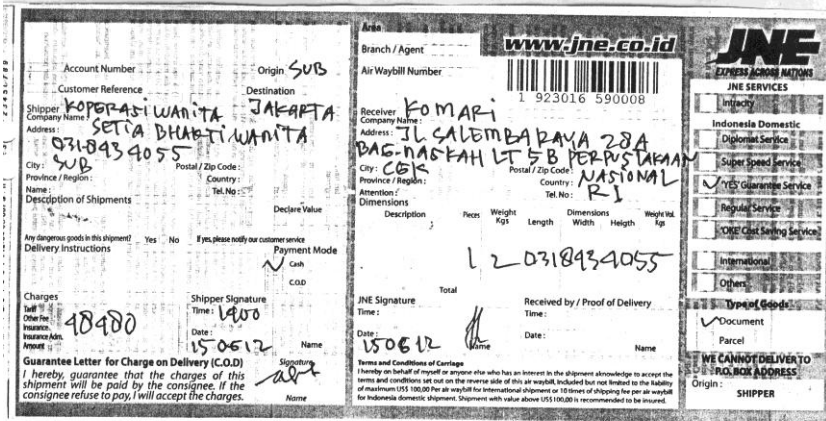 Area
Branch / Agent
www.jne.co.id
JNE
EXPRESS ACROSS NATIONS
Account Number
Origin SUB
Air Waybill Number
1 923016 590008
Customer Reference
Destination
JAKARTA
Shipper KOPERASI WANITA
Company Name:
SETIA BHAKTI WANITA
Address:
0318434055
City:
SUB
Postal / Zip Code:
Province / Region:
Country:
Name:
Tel. No:
Description of Shipments
Declare Value
Any dangerous goods in this shipment? Yes No If yes, please notify our customer service
Delivery Instructions
Payment Mode
Cash
C.O.D
Charges
Tariff
Other Fee
Insurance
Insurance Adm.
Amount
48480
Shipper Signature
Time: 1400
Date:
150612
Name
Guarantee Letter for Charge on Delivery (C.O.D)
I hereby, guarantee that the charges of this
shipment will be paid by the consignee. If the
consignee refuse to pay, I will accept the charges.
Signature
Name
Receiver KOMARI
Company Name:
Address: JL SALEMBA RAYA 28A
BAG-NASKAH LT 5B PERPUSTAKAAN
City: CGK
Postal / Zip Code:
NASIONAL
Province / Region:
Country:
RI
Attention:
Tel. No:
Dimensions
Description
Pieces
Weight Kgs
Dimensions
Length Width Heigth
Weight Vol. Kgs
1 2 0318434055
Total
JNE Signature
Time:
Date:
150612
Name
Received by / Proof of Delivery
Time:
Date:
Name
Terms and Conditions of Carriage
I hereby on behalf of myself or anyone else who has an interest in the shipment aknowledge to accept the
terms and conditions set out on the reverse side of this air waybill, included but not limited to the liability
of maximum US$ 100,00 Per air waybill for international shipment or 10 times of shipping fee per air waybill
for Indonesia domestic shipment. Shipment with value above US$ 100,00 is recommended to be insured.
JNE SERVICES
Intracity
Indonesia Domestic
Diplomat Service
Super Speed Service
'YES' Guarantee Service
Regular Service
'OKE' Cost Saving Service
International
Others
Type of Goods
Document
Parcel
WE CANNOT DELIVER TO
P.O. BOX ADDRESS
Origin:
SHIPPER